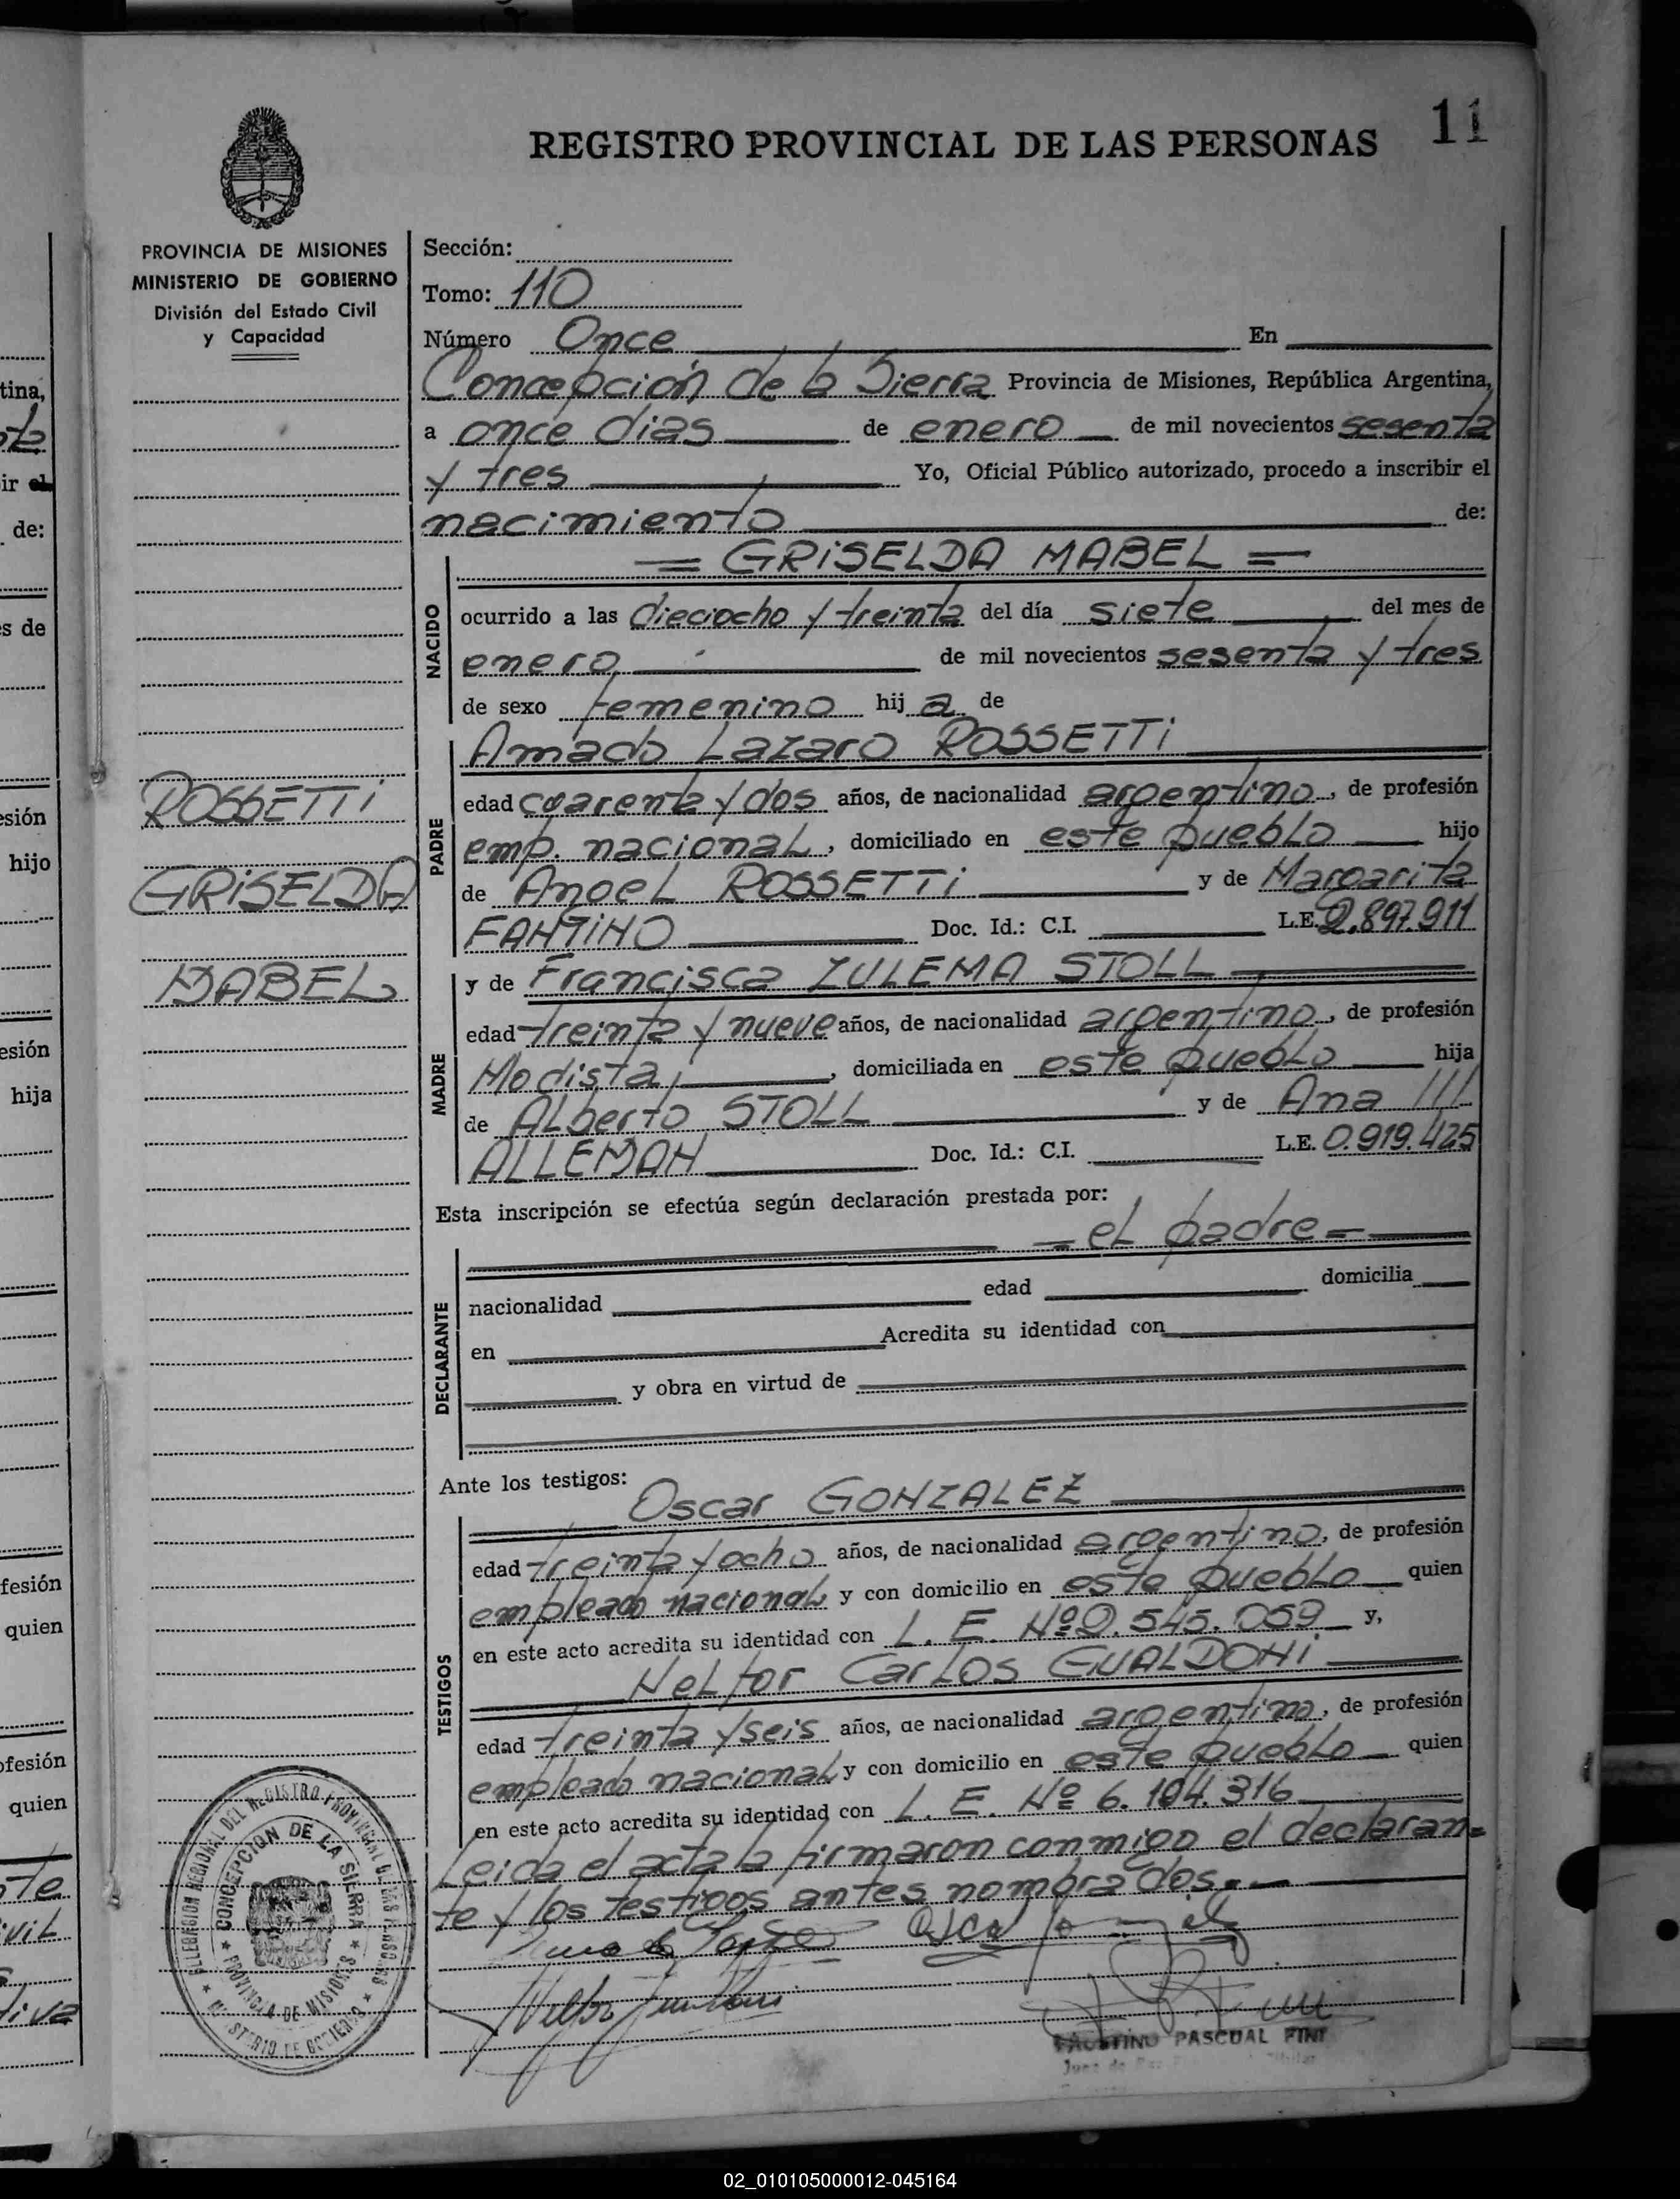 11
REGISTRO PROVINCIAL DE LAS PERSONAS
PROVINCIA DE MISIONES
MINISTERIO DE GOBIERNO
División del Estado Civil
y Capacidad
Sección:
Tomo: 110
Número Once En
Concepción de la Sierra Provincia de Misiones, República Argentina,
a once dias de enero de mil novecientos sesenta
y tres Yo, Oficial Público autorizado, procedo a inscribir el
nacimiento de:
= GRISELDA MABEL =
NACIDO
ocurrido a las dieciocho y treinta del día siete del mes de
enero de mil novecientos sesenta y tres
de sexo femenino hij a de
Amado Lazaro ROSSETTI
PADRE
edad cuarenta y dos años, de nacionalidad argentino, de profesión
emp. nacional, domiciliado en este pueblo hijo
de Angel ROSSETTI y de Margarita
FANTINO Doc. Id.: C.I. L.E. 2.897.911
y de Francisca ZULEMA STOLL
MADRE
edad treinta y nueve años, de nacionalidad argentino, de profesión
Modista, domiciliada en este pueblo hija
de Alberto STOLL y de Ana ///
ALLEMAN Doc. Id.: C.I. L.E. 0.919.425
ROSSETTI
GRISELDA
MABEL
Esta inscripción se efectúa según declaración prestada por:
= el padre =
DECLARANTE
nacionalidad edad domicilia
en Acredita su identidad con
y obra en virtud de
Ante los testigos:
Oscar GONZALEZ
TESTIGOS
edad treinta y ocho años, de nacionalidad argentino, de profesión
empleado nacional y con domicilio en este pueblo quien
en este acto acredita su identidad con L. E. Nº 2.545.059 y,
Heltor Carlos GUALDONI
edad treinta y seis años, de nacionalidad argentino, de profesión
empleado nacional y con domicilio en este pueblo quien
en este acto acredita su identidad con L. E. Nº 6.104.316
Leida el acta la firmaron conmigo el declaran=
te y los testigos antes nombrados.
DELEGACION REGIONAL DEL REGISTRO PROVINCIAL DE LAS PERSONAS
CONCEPCION DE LA SIERRA
PROVINCIA DE MISIONES
MINISTERIO DE GOBIERNO
FAUSTINO PASCUAL FINI
tina,
ir el
de:
s de
esión
hijo
esión
hija
fesión
quien
ofesión
quien
te
vil
iva
02_010105000012-045164